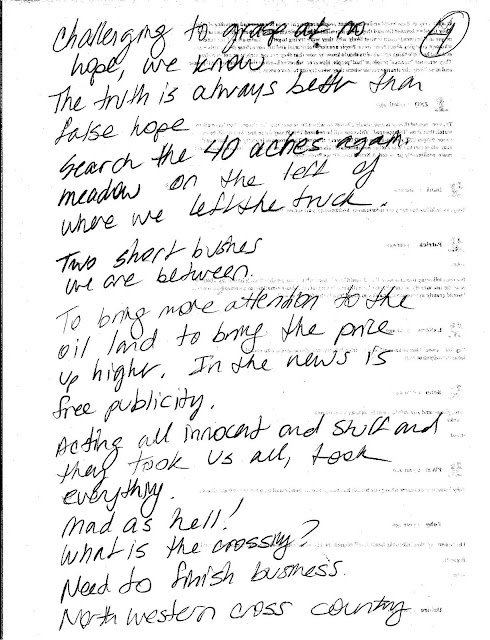 challenging to grasp at no
hope, we know
The truth is always better than
false hope
Search the 40 aches again.
meadow on the left of
where we left the truck.
Two short bushes
we are between.
To bring more attention to the
oil land to bring the price
up higher. In the news is
free publicity.
Acting all innocent and stuff and
they took us all, took
everything.
Mad as hell!
What is the crossing?
Need to finish business.
Northwestern cross country